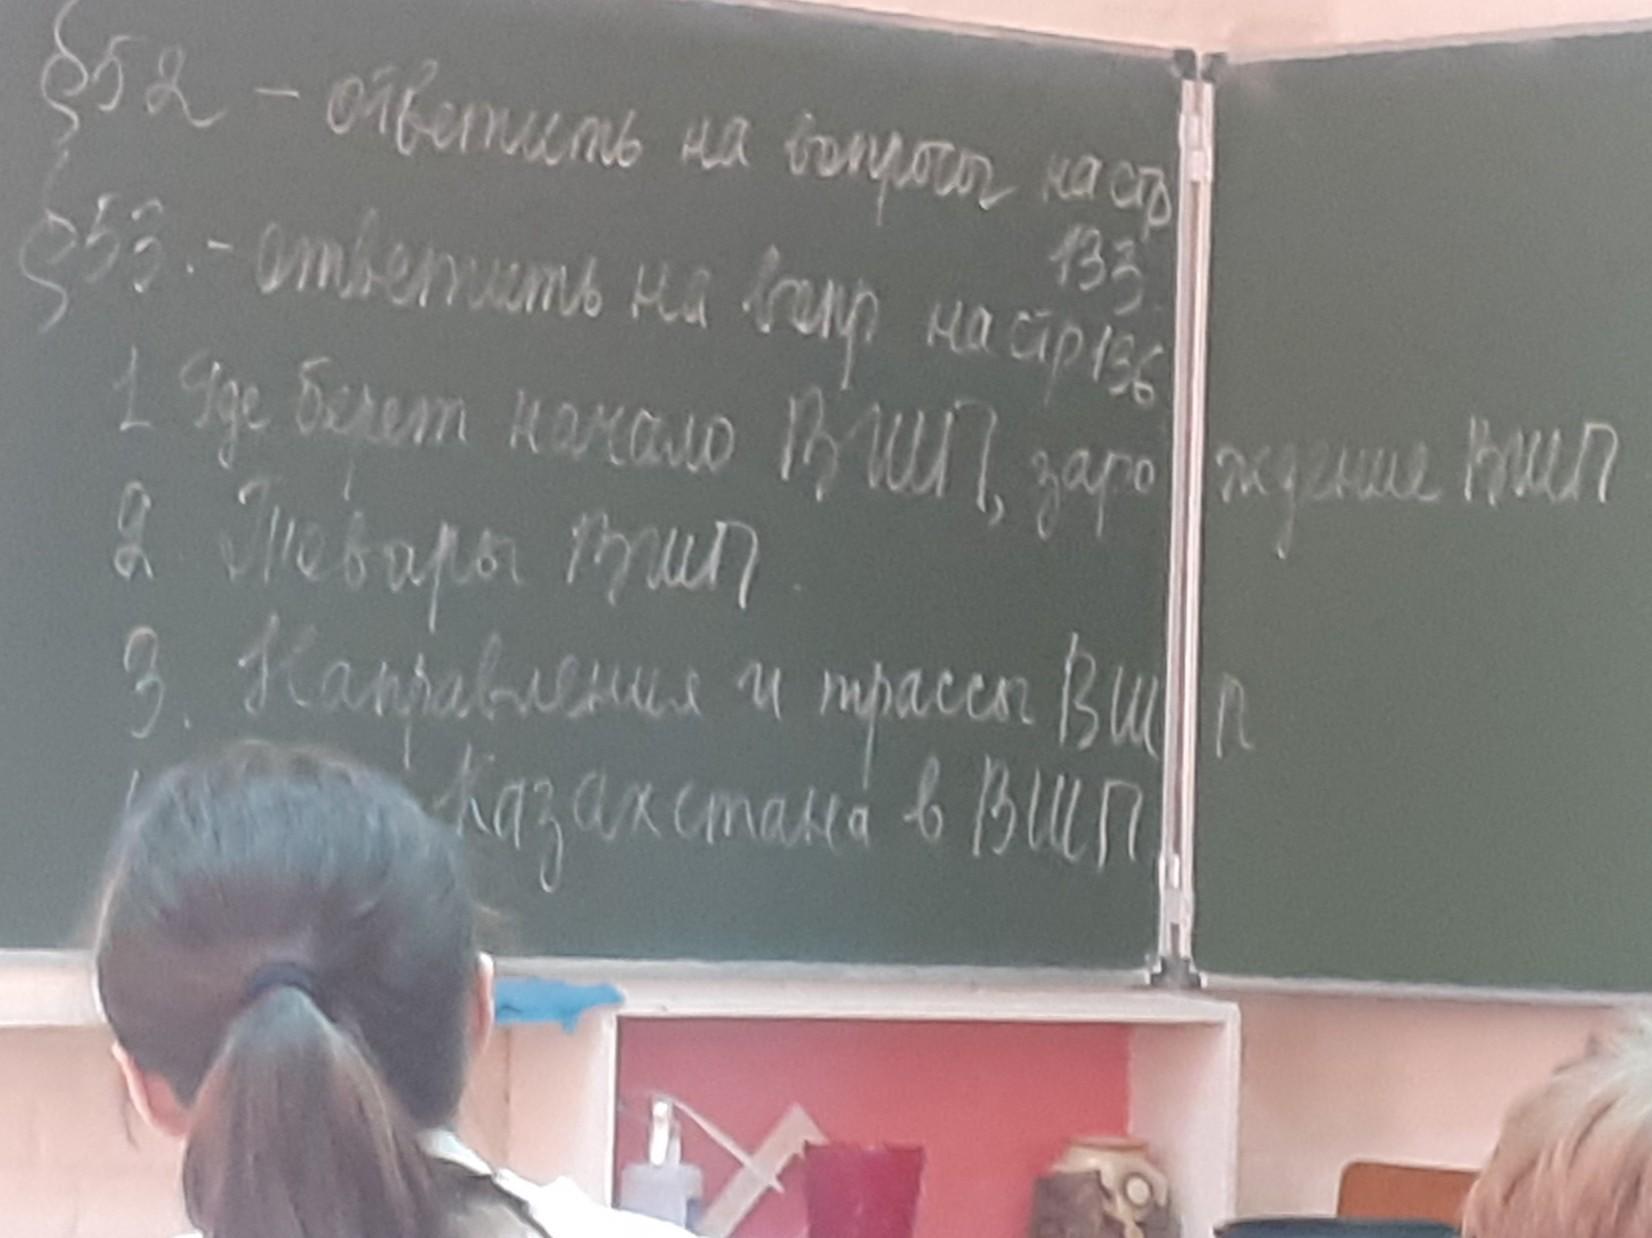 §52 – ответить на вопросы на стр
133.
§53. – ответить на вопр на стр 136
1 Где берет начало ВШП, зарождение ВШП
2 Товары ВШП.
3. Направления и трассы ВШП
Казахстана в ВШП